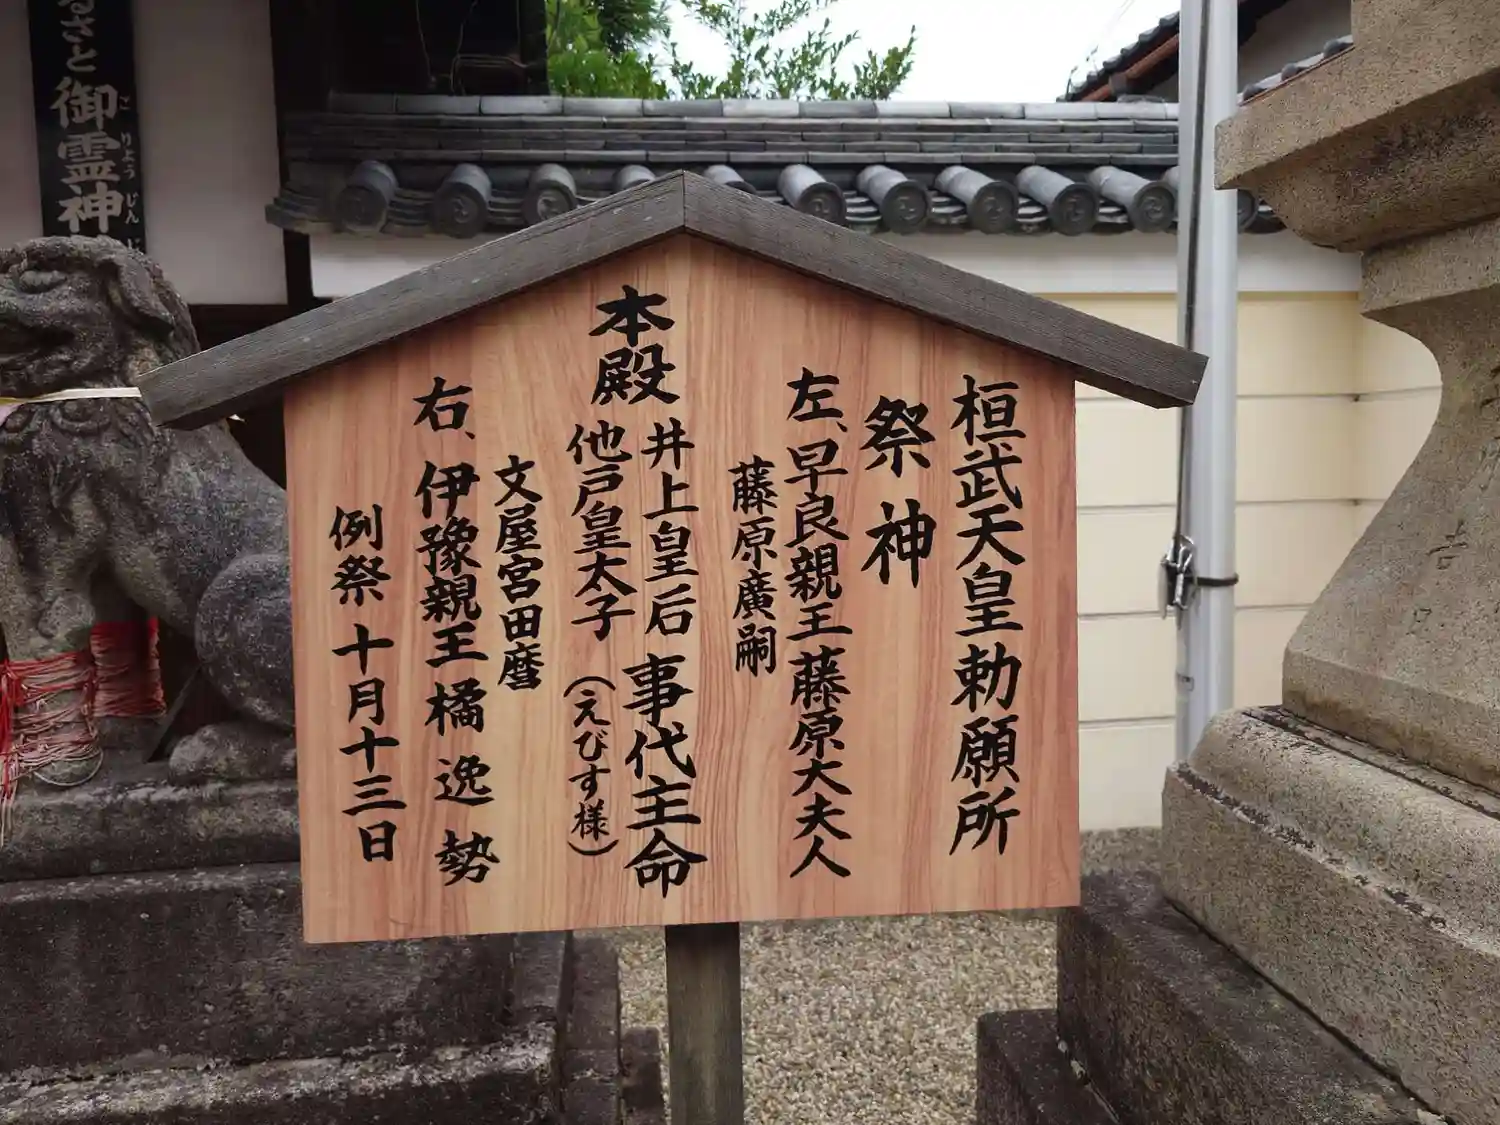 桓武天皇勅願所
祭神
左、早良親王藤原大夫人
藤原廣嗣
本殿
井上皇后
他戸皇太子
事代主命
(えびす様)
文屋宮田麿
右、伊豫親王橘逸勢
例祭十月十三日
るさと御霊神
ごりょうじんじ